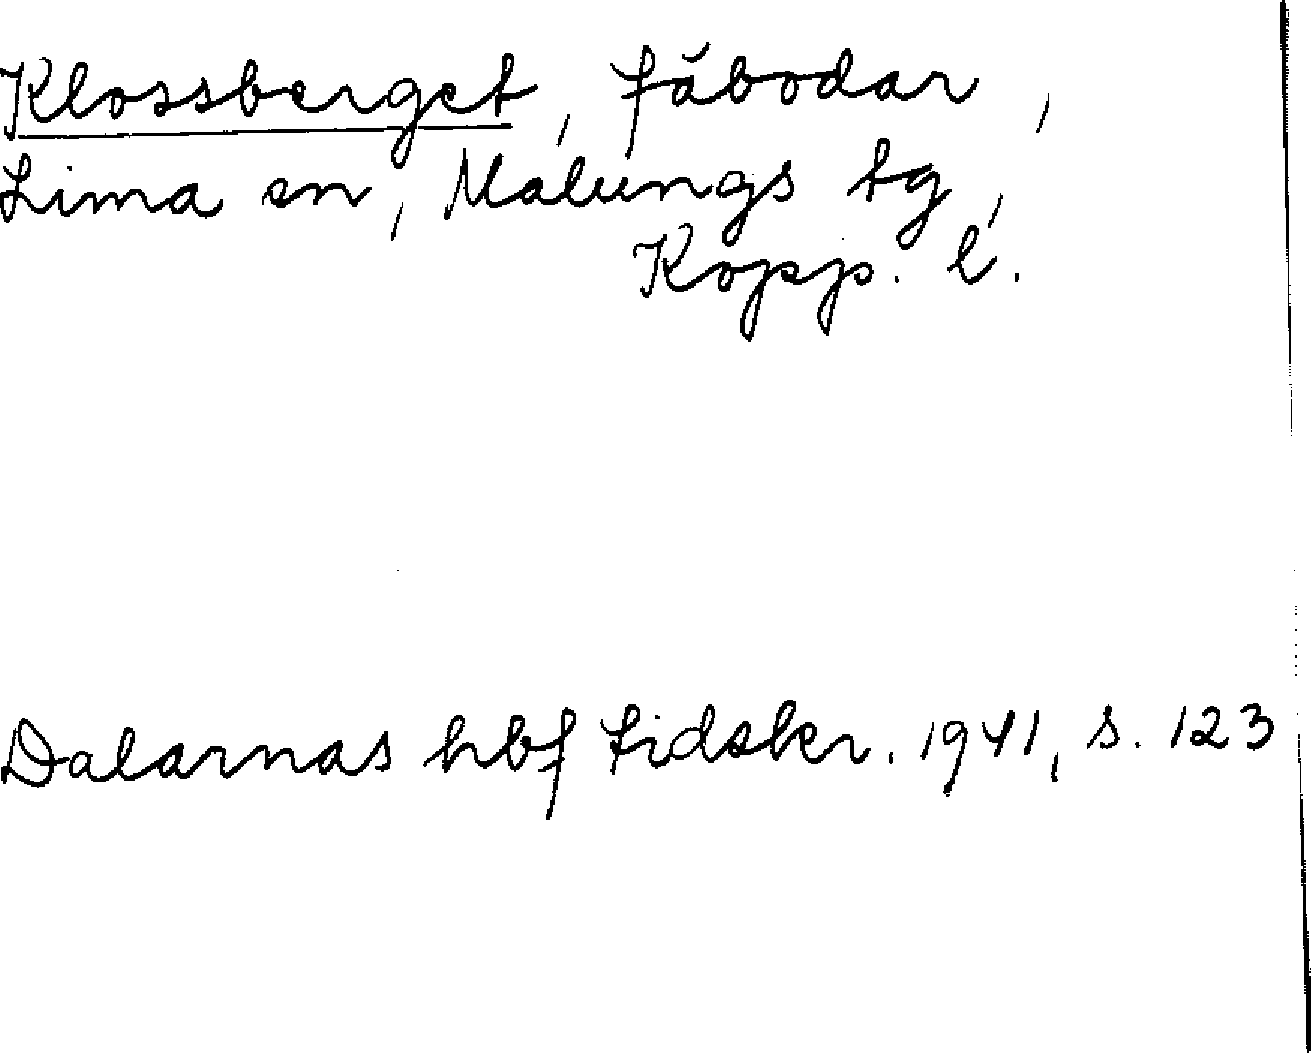 Klossberget, fäbodar,
Lima sn, Malungs tg,
Kopp. l.
Dalarnas hbf tidskr. 1941, s. 123